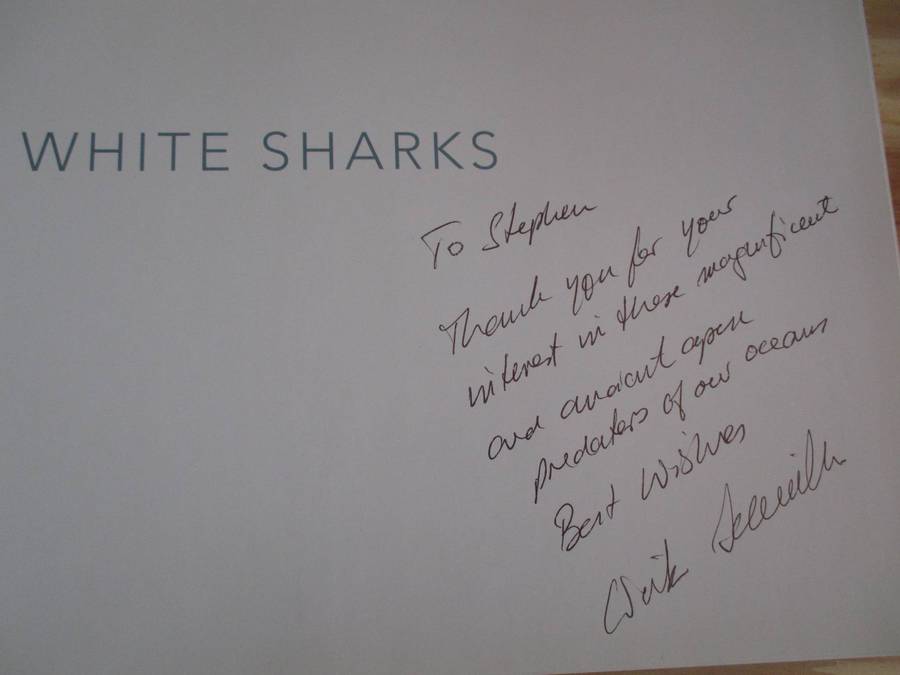 WHITE SHARKS
To Stephen
Thank you for your
interest in these magnificent
and ancient apex
predators of our oceans
Best Wishes
Dirk